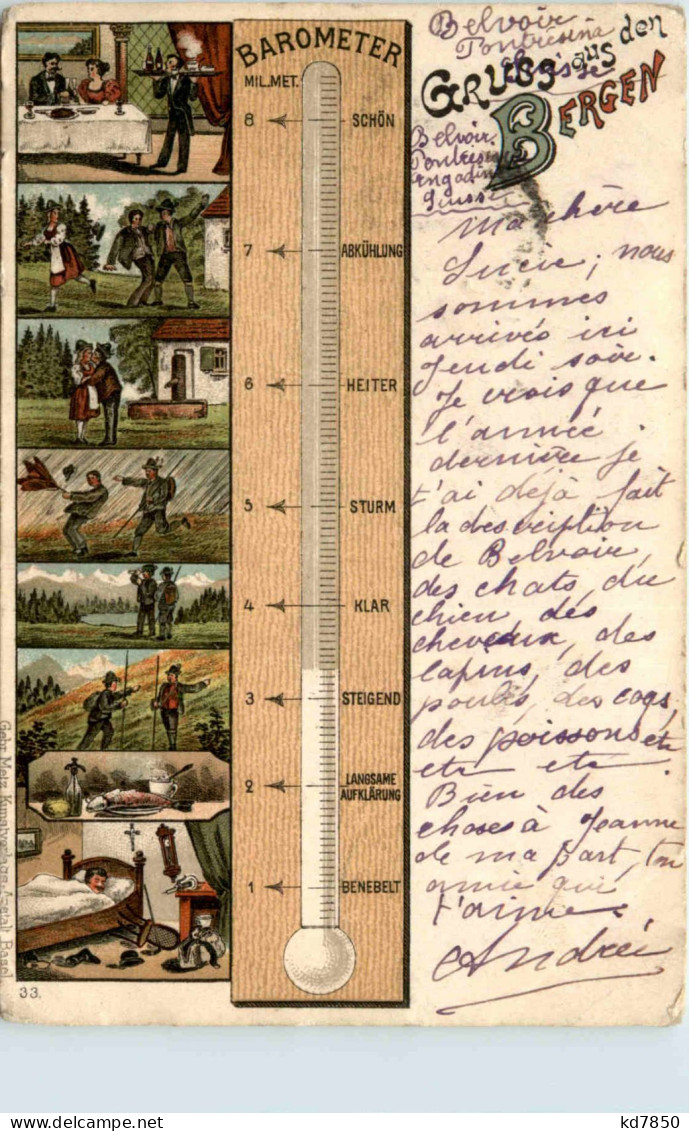 BAROMETER
MIL.MET.
8 SCHÖN
7 ABKÜHLUNG
6 HEITER
5 STURM
4 KLAR
3 STEIGEND
2 LANGSAME
AUFKLÄRUNG
1 BENEBELT
33.
Gebr. Metz, Kunstverlags-Anstalt, Basel
GRUSS aus den
BERGEN
Belvoir
Pontresina
Suisse
Belvoir,
Pontresina
Engadin
Suisse
Ma chère
Lucie, nous
sommes
arrivés ici
jeudi soir.
Je crois que
l'année
dernière je
t'ai déjà fait
la description
de Belvoir,
des chats, du
chien des
chevaux, des
lapins, des
poules, des coqs,
des poissons etc
etc etc.
Bien des
choses à Jeanne
de ma part, ton
amie qui
t'aime.
Andrée
kd7850